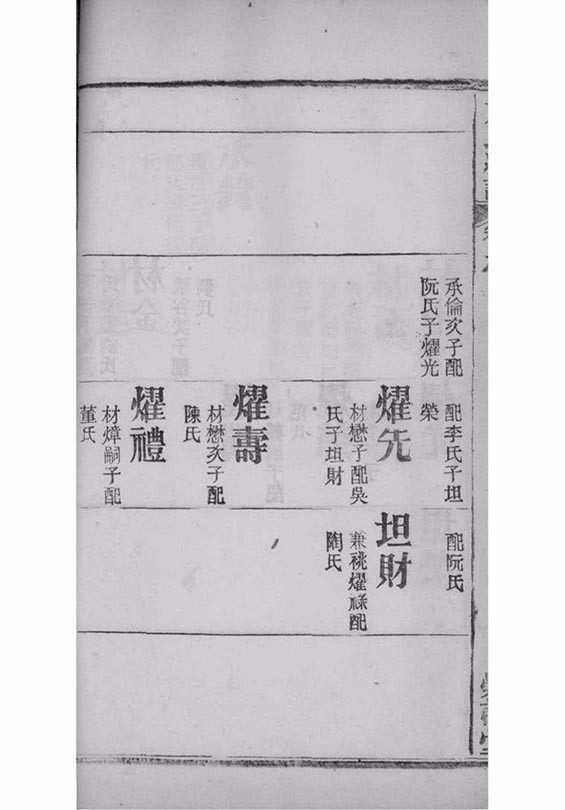 承倫次子配
阮氏子燿光
配李氏子坦
榮
燿先
材懋子配吳
氏子坦財
燿壽
材懋次子配
陳氏
燿禮
材煒嗣子配
董氏
配阮氏
坦財
兼祧燿祿配
陶氏